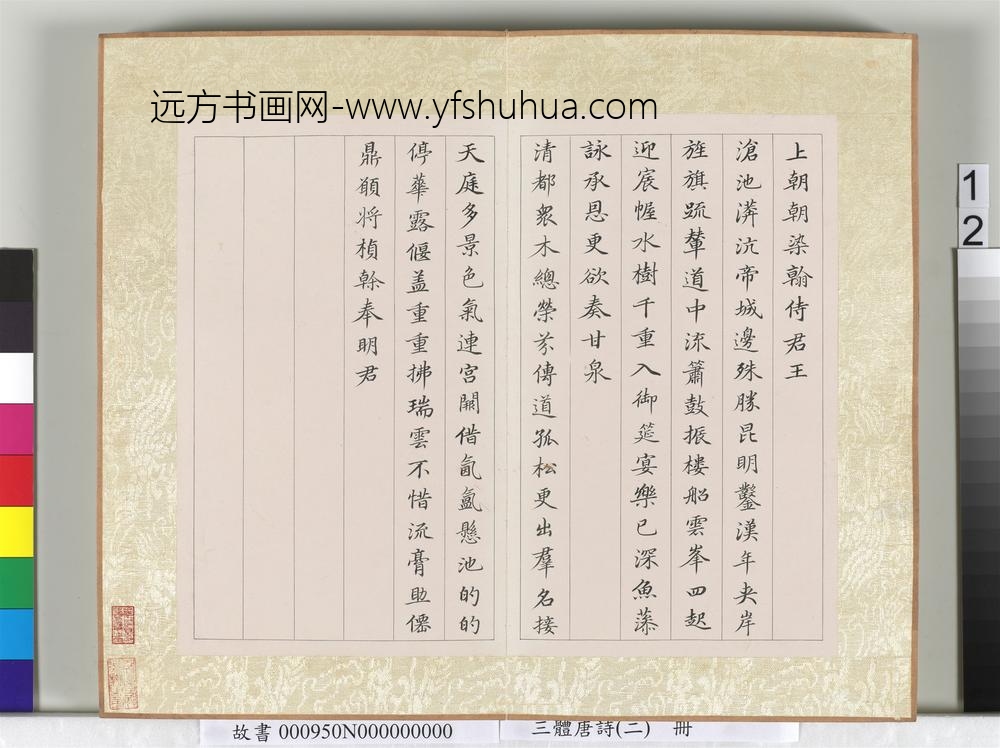 远方书画网-www.yfshuhua.com
上朝朝染翰侍君王
滄池漭沆帝城邊殊勝昆明鑿漢年夹岸
旌旗疏輦道中流簫鼓振樓船雲峯四起
迎宸幄水樹千重入御筵宴樂已深魚藻
詠承恩更欲奏甘泉
清都衆木總榮芬傳道孤松更出羣名接
天庭多景色氣連宮闕借氤氳懸池的的
停華露偃盖重重拂瑞雲不惜流膏助僊
鼎願將楨榦奉明君
1
2
故書 000950N000000000
三體唐詩(二) 冊